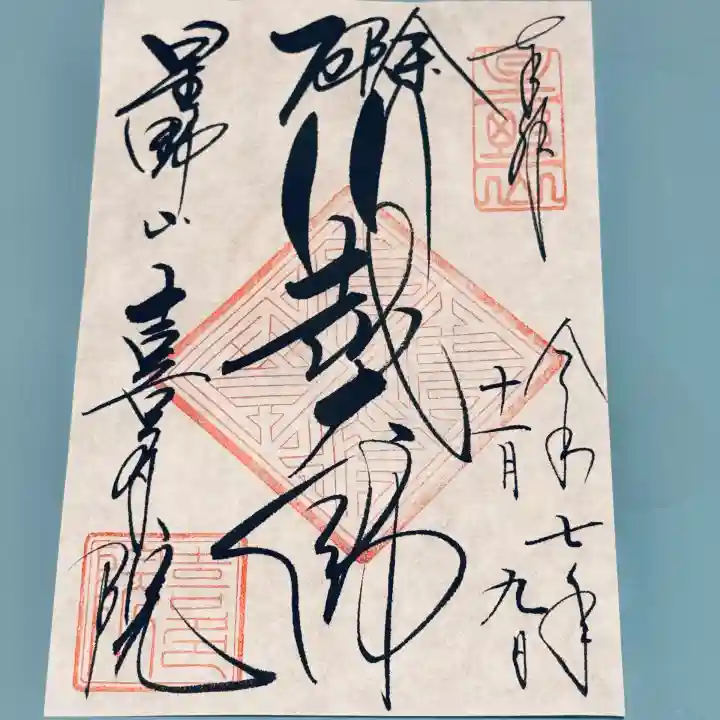 奉拝
令和七年
十一月九日
厄除
川越大師
星野山 喜多院